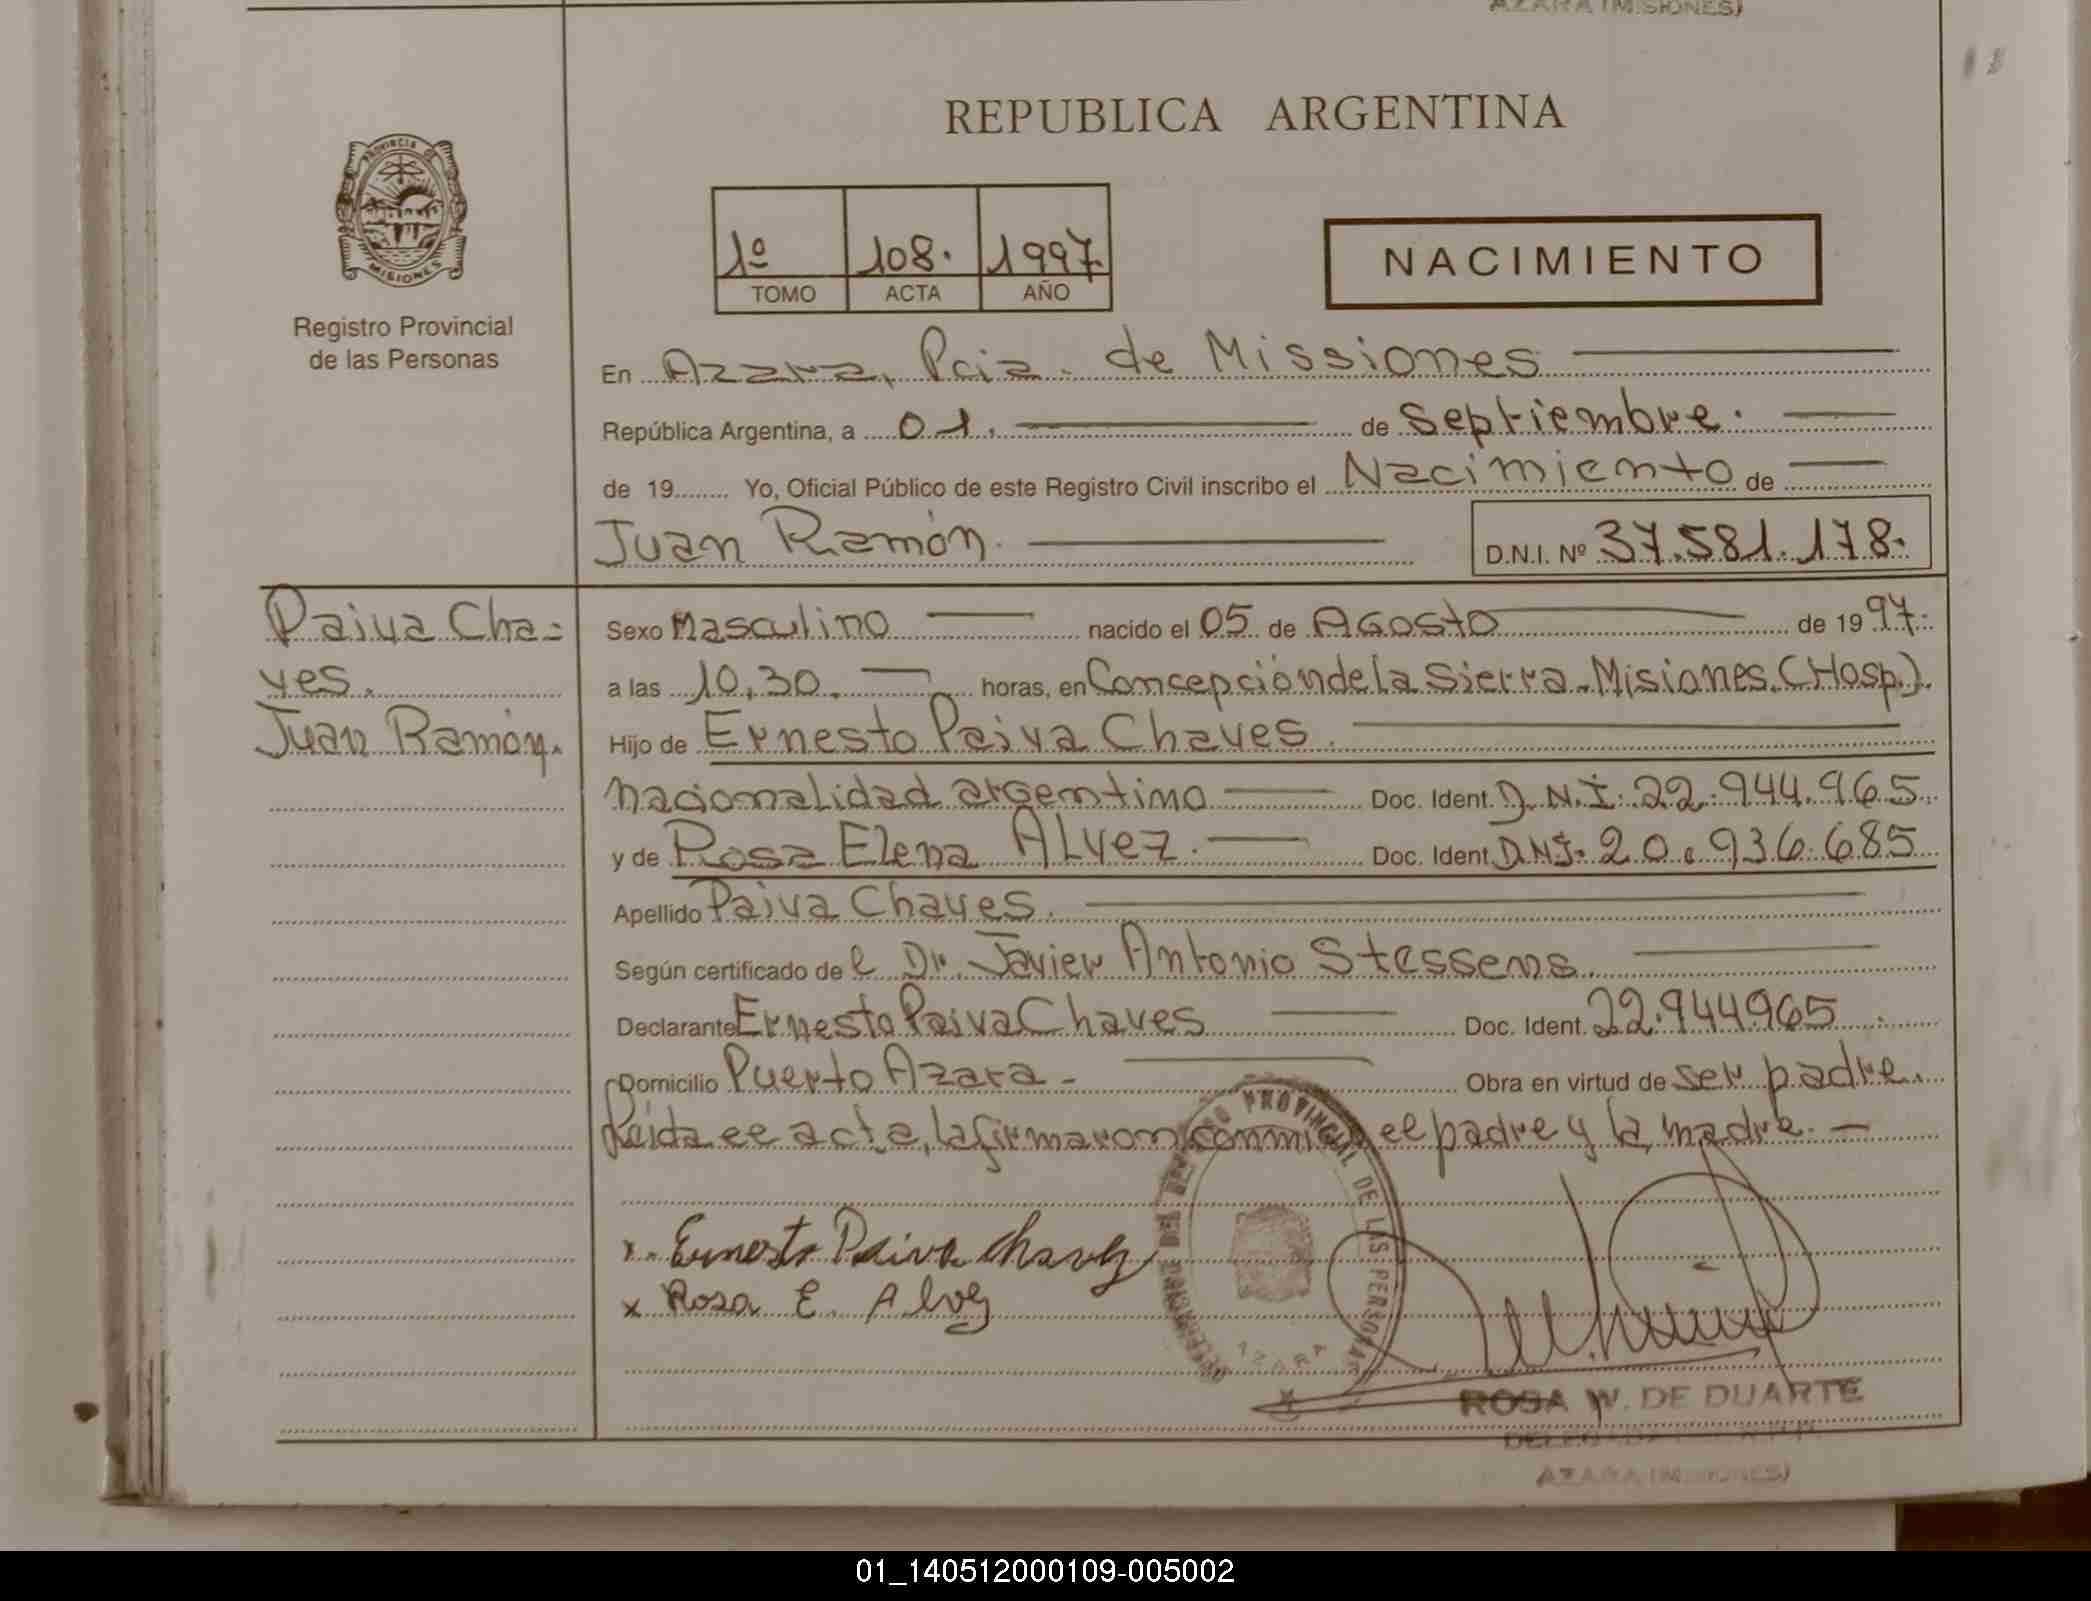 AZARA (MISIONES)
REPUBLICA ARGENTINA
PROVINCIA DE
MISIONES
Registro Provincial
de las Personas
1º 108. 1997
TOMO ACTA AÑO
NACIMIENTO
En Azara, Pcia. de Missiones
República Argentina, a 01. de Septiembre.
de 19........ Yo, Oficial Público de este Registro Civil inscribo el Nacimiento de
Juan Ramón. D.N.I. Nº 37.581.178.
Paiva Cha-
ves.
Juan Ramón.
Sexo Masculino nacido el 05 de Agosto de 1997.
a las 10,30. horas, en Concepción de la Sierra-Misiones.(Hosp).
Hijo de Ernesto Paiva Chaves.
nacionalidad argentino Doc. Ident. D.N.I. 22.944.965
y de Rosa Elena Alvez. Doc. Ident D.N.I. 20.936.685
Apellido Paiva Chaves.
Según certificado de l Dr. Javier Antonio Stessens.
Declarante Ernesto Paiva Chaves Doc. Ident. 22.944965
Domicilio Puerto Azara- Obra en virtud de ser padre.
Leida el acta, la firmaron conmigo el padre y la madre. -
x. Ernesto Paiva Chavez
x Rosa E. Alvez
REGISTRO PROVINCIAL DE LAS PERSONAS
AZARA
ROSA W. DE DUARTE
AZARA (MISIONES)
01_140512000109-005002